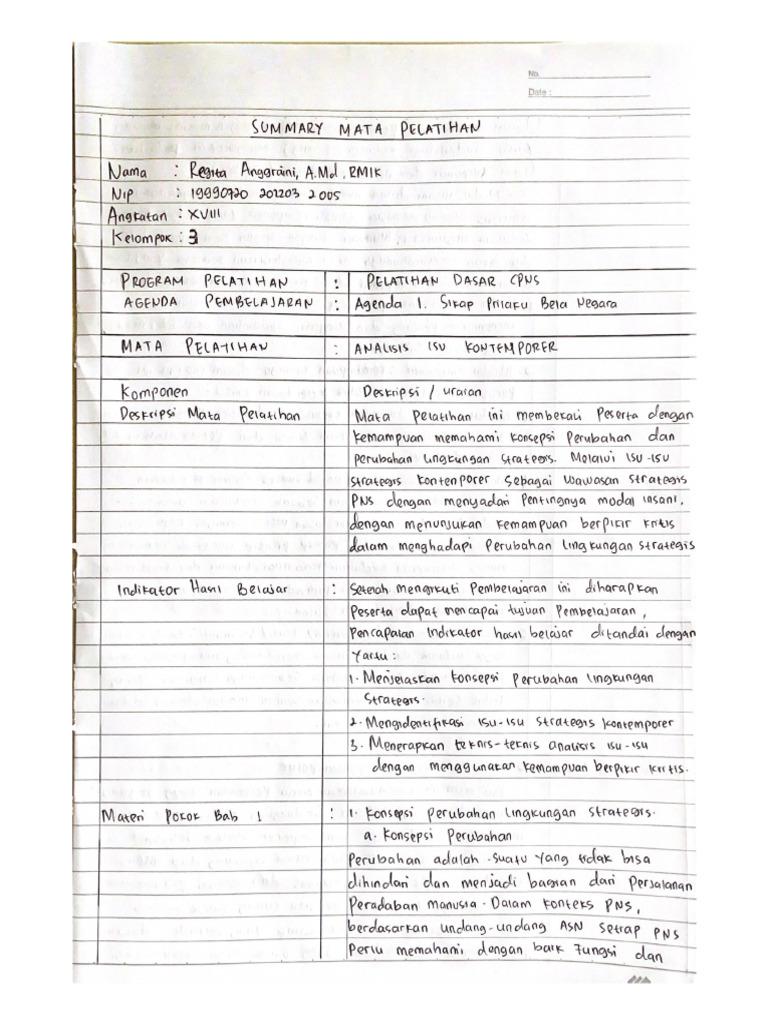 No.
Date :
SUMMARY MATA PELATIHAN
Nama : Regita Anggraini, A.Md, RMIK
NIP : 19990720 202203 2005
Angkatan : XVIII
Kelompok : 3
PROGRAM PELATIHAN : PELATIHAN DASAR CPNS
AGENDA PEMBELAJARAN : Agenda 1. Sikap Prilaku Bela Negara
MATA PELATIHAN : ANALISIS ISU KONTEMPORER
Komponen Deskripsi / uraian
Deskripsi Mata Pelatihan Mata Pelatihan ini membekali Peserta dengan
kemampuan memahami konsepsi Perubahan dan
perubahan lingkungan strategis. Melalui ISU-ISU
strategis kontenporer sebagai wawasan strategis
PNS dengan menyadari Pentingnya modal insani,
dengan menunjukan kemampuan berpikir kritis
dalam menghadapi Perubahan lingkungan strategis
Indikator Hasil Belajar : Setelah mengikuti Pembelajaran ini diharapkan
Peserta dapat mencapai tujuan Pembelajaran,
Pencapaian Indikator hasil belajar ditandai dengan
Yaitu :
1. Menjelaskan Konsepsi Perubahan lingkungan
Strategis.
2. Mengidentifikasi ISU-ISU Strategis Kontemporer
3. Menerapkan teknis-teknis analisis ISU-ISU
dengan menggunakan kemampuan berpikir kritis.
Materi Pokok Bab 1 : 1. Konsepsi Perubahan lingkungan strategis.
a. Konsepsi Perubahan
Perubahan adalah suatu yang tidak bisa
dihindari dan menjadi bagian dari Perjalanan
Peradaban manusia. Dalam konteks PNS,
berdasarkan undang-undang ASN setiap PNS
Perlu memahami dengan baik Fungsi dan